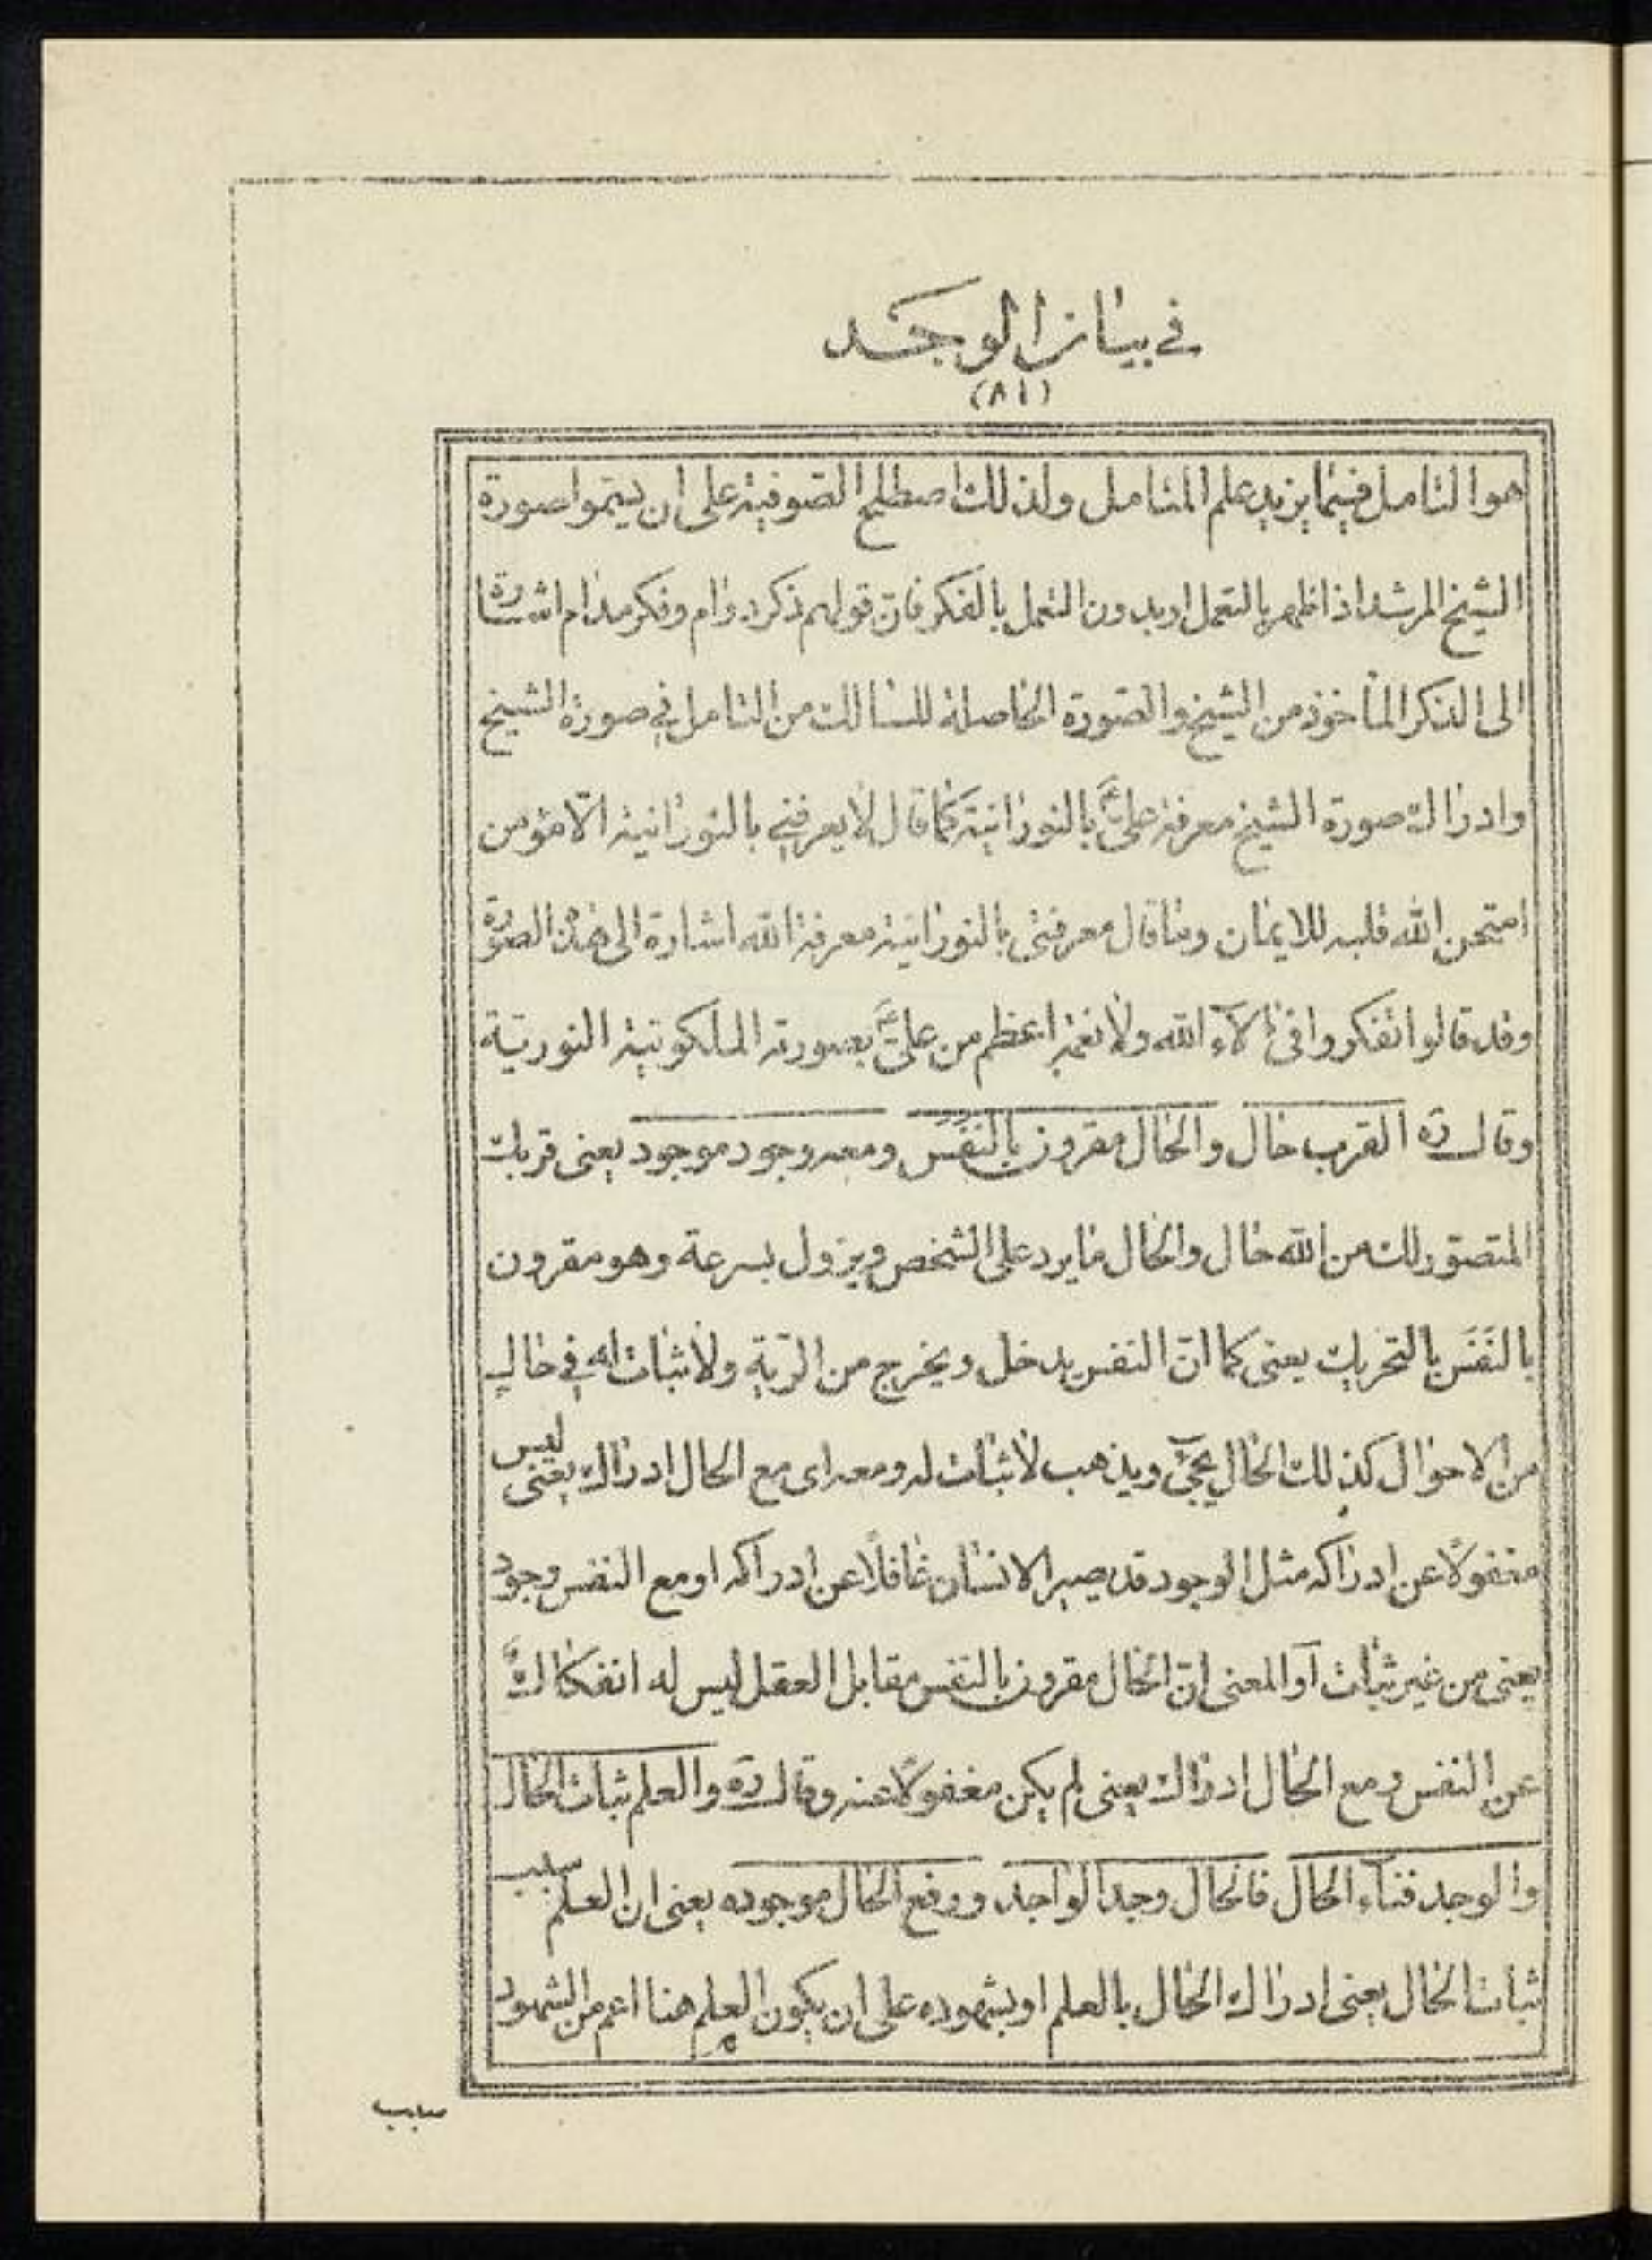 في بيان الوجد
(٨١)
هو التامل فيما يزيد علم المتامل ولذلك اصطلح الصّوفية على ان يسمّوا صورة
الشيخ المرشد اذا ظهر بالتعمل او بدون التعمل بالفكر فانّ قولهم ذكر دوام وفكر مدام اشارة
الى الذكر المأخوذ من الشيخ والصّورة الحاصلة للسالك من التامل في صورة الشيخ
وادراك صورة الشيخ معرفة علیّ ع بالنورانيّة كما قال لا يعرفني بالنورانية الّا مؤمن
امتحن الله قلبه للايمان وما قال معرفتي بالنورانيّة معرفة الله اشارة الى هذه الصّورة
وقد قالوا تفكروا فى آلاء الله ولا نعمة اعظم من علیّ ع بصورته الملكوتيّة النوريّة
وقال ره القرب حال والحال مقرون بالنَفَس ومعه وجود موجود يعنى قربك
المتصوّر لك من الله حال والحال ما يرد على الشخص ويزول بسرعة وهو مقرون
بالنَفَس بالتحريك يعنى كما انّ النفس يدخل ويخرج من الرّية ولا ثبات له في حال
من الاحوال كذلك الحال يجئ ويذهب لا ثبات له ومعه اى مع الحال ادراك يعنى ليس
مغفولًا عن ادراكه مثل الوجود قد يصير الانسان غافلًا عن ادراكه او مع النفس وجود
يعنى من غير ثبات آو المعنى انّ الحال مقرون بالنفس مقابل العقل ليس له انفكاك
عن النفس ومع الحال ادراك يعنى لم يكن مغفولًا عنه وقال ره والعلم ثبات الحال
والوجد فناء الحال فالحال وجد الواجد ووقع الحال موجوده يعنى ان العلم سبب
ثبات الحال يعنى ادراك الحال بالعلم او بشهوده على ان يكون العلم هنا اعم من الشهود
سبب